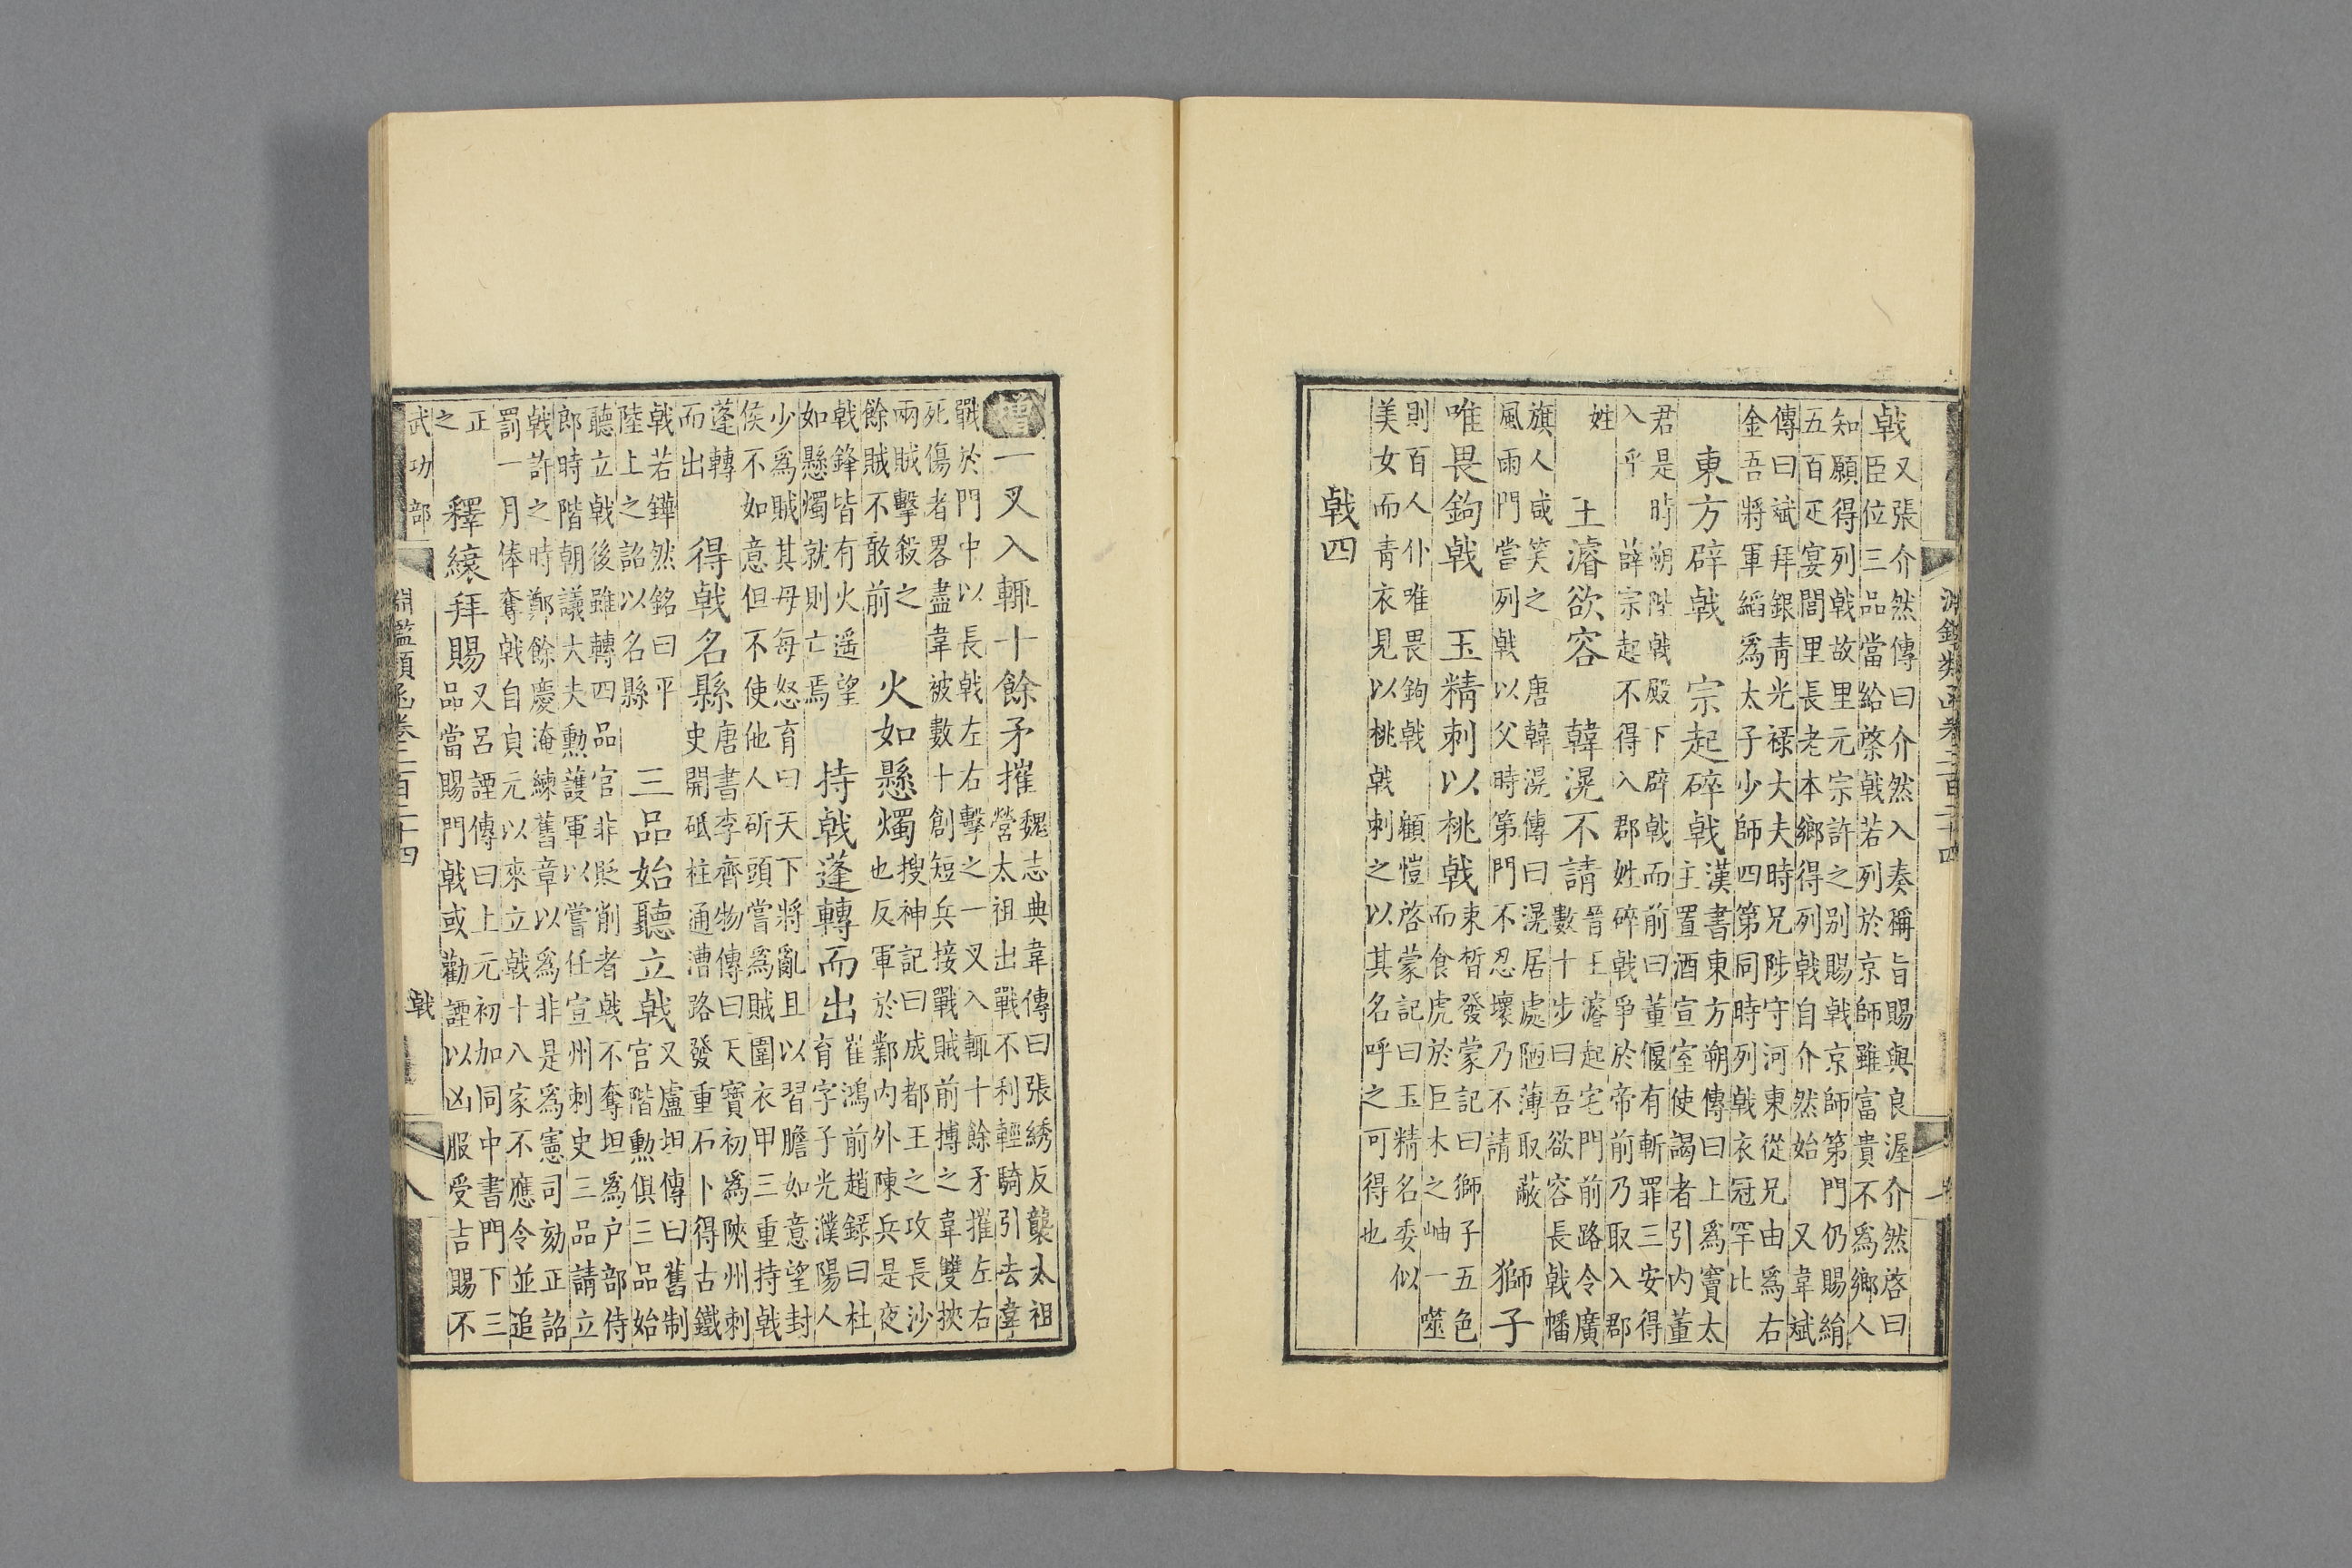 淵鑑類函卷二百二十四
戟
又張介然傳曰介然入奏稱旨賜與良渥介然啓曰
臣位三品當給棨戟若列於京師雖富貴不爲鄉人
知願得列戟故里元宗許之别賜戟京師第門仍賜絹
五百疋宴閭里長老本鄉得列戟自介然始 又韋斌
傳曰斌拜銀青光禄大夫時兄陟守河東從兄由爲右
金吾將軍縚爲太子少師四第同時列戟衣冠罕比
東方辟戟 宗起碎戟
漢書東方朔傳曰上爲竇太
主置酒宣室使謁者引内董
君是時朔陛戟殿下辟戟而前曰董偃有斬罪三安得
入乎 薛宗起不得入郡姓碎戟爭於帝前乃取入郡
姓 王濬欲容 韓滉不請
晉王濬起宅門前路令廣
數十步曰吾欲容長戟幡
旗人咸笑之 唐韓滉傳曰滉居處陋薄取蔽
風雨門當列戟以父時第門不忍壞乃不請
獅子
唯畏鉤戟 玉精刺以桃戟
束皙發蒙記曰獅子五色
而食虎於巨木之岫一噬
則百人仆唯畏鉤戟 顧愷啓蒙記曰玉精名委似
美女而青衣見以桃戟刺之以其名呼之可得也
戟四
增一叉入輒十餘矛摧
魏志典韋傳曰張綉反襲太祖
營太祖出戰不利輕騎引去韋
戰於門中以長戟左右擊之一叉入輒十餘矛摧左右
死傷者畧盡韋被數十創短兵接戰賊前搏之韋雙挾
兩賊擊殺之
餘賊不敢前
火如懸燭
搜神記曰成都王之攻長沙
也反軍於鄴内外陳兵是夜
戟鋒皆有火遥望
如懸燭就則亡焉
持戟蓬轉而出
崔鴻前趙録曰杜
育字子光濮陽人
少爲賊其母每怒育曰天下將亂且以習膽如意望封
侯不如意但不使他人斫頭嘗爲賊圍衣甲三重持戟
蓬轉
而出
得戟名縣
唐書李齊物傳曰天寶初爲陝州刺
史開砥柱通漕路發重石卜得古鐵
戟若鏵然銘曰平
陸上之詔以名縣
三品始聽立戟
又盧坦傳曰舊制
官階勲俱三品始
聽立戟後雖轉四品官非貶削者戟不奪坦爲户部侍
郎時階朝議大夫勲護軍以嘗任宣州刺史三品請立
戟許之時鄭餘慶淹練舊章以爲非是爲憲司劾正詔
罰一月俸奪戟自貞元以來立戟十八家不應令並追
正
之
釋縗拜賜
又呂諲傳曰上元初加同中書門下三
品當賜門戟或勸諲以凶服受吉賜不
武功部
淵鑑類函卷二百二十四
戟
八